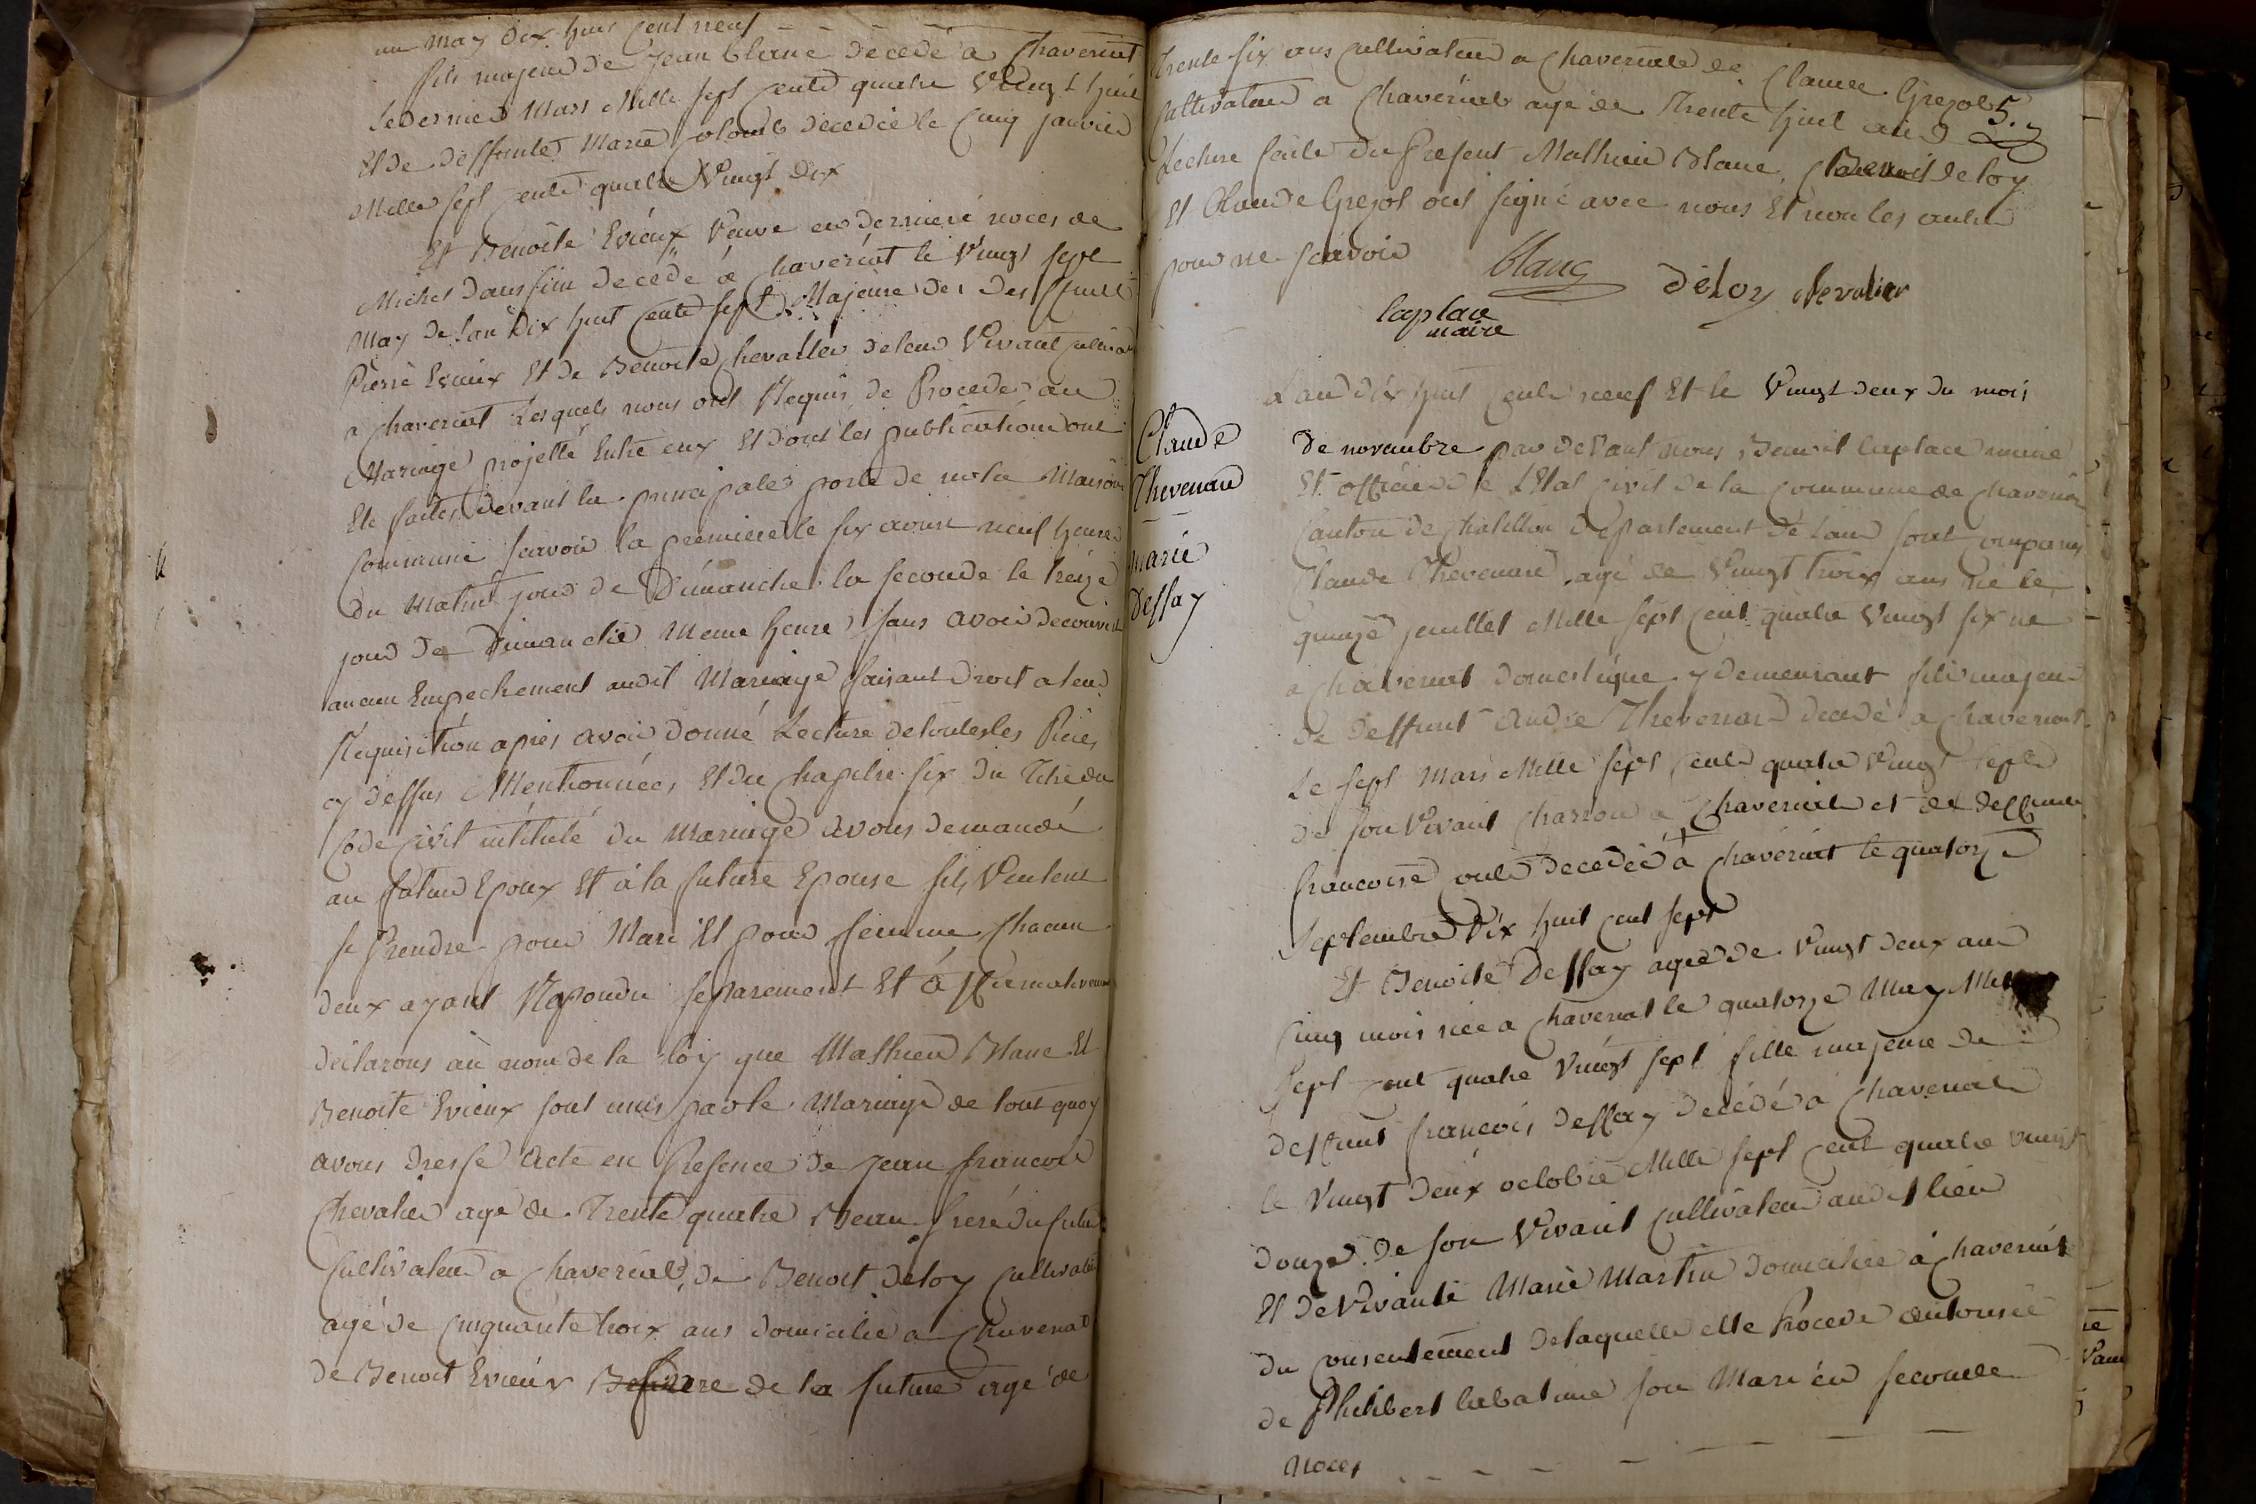 un may dix huit cent neuf
fils majeur de Jean blanc decedé a Chaveriat
le dernier Mars Mille sept cents quatre Vingt huit
Et de deffunte Marie decedée le Cinq janvier
Mille sept cents quatre Vingt dix
Et Benoite Evieux Veuve en derniere noces de
Michel decedé a Chaveriat le Vingt sept
May de lan dix huit cents sept Majeure de deffunt
Pierre Evieux Et de Benoite Chevallier de leur Vivant
a Chaveriat Lesquels nous ont Requis de Proceder au
Mariage projetté Entre eux Et dont les publications ont
Ete faites devant la principale porte de notre Maison
Commune scavoir la premiere le six aoust neuf heures
du Matin jour de Dimanche la seconde le treize
jour de Dimanche Meme heure sans avoir decouvert
aucun Empechement audit Mariage faisant droit a leur
Requisition apres avoir donné Lecture de toutes les Pieces
cy dessus Mentionnées Et du Chapitre six du Titre du
Code Civil intitulé du Mariage avons demandé
au futur Epoux Et à la future Epouse sils Veulent
se Prendre pour Mari Et pour femme Chacun
deux ayant Repondu separement Et affirmativement
declarons au nom de la loy que Mathieu Blanc Et
Benoite Evieux sont unis par le Mariage de tout quoy
avons dressé Acte en Presence de Jean francois
Chevalier agé de Trente quatre Beau frere du futur
Cultivateur a Chaveriat, de Benoit deloy Cultivateur
agé de Cinquante trois ans domicilié a Chaveriat
de Benoit Evieux de la future agé de
Trente six ans Cultivateur a Chaveriat de Claude Grezol
Cultivateur a Chaveriat agé de Trente huit ans
5.
Lecture faite du Present Mathieu Blanc, Benoit deloy
Et Claude Grezol ont signé avec nous Et non les autres
pour ne scavoir
blanc Deloy chevalier
laplace
maire
Claude
Thevenard
marie
Dessay
Lan dix huit cents neuf Et le Vingt deux du mois
de novembre par devant nous Benoit laplace maire
Et officier de LEtat Civil de la Commune de Chaveriat
Canton de Chatillon departement de lain sont comparus
Claude Thevenard agé de Vingt trois ans né le
quinze juillet Mille sept cent quatre Vingt six né
a Chaveriat domestique y demeurant fils majeur
de deffunt André Thevenard decedé a Chaveriat
Le sept Mars Mille sept cents quatre Vingt sept
de son Vivant Charron a Chaveriat et de deffunte
francoise decedée a Chaveriat le quatorze
Septembre dix huit cent sept
Et Benoite Dessay agée de Vingt deux ans
Cinq mois née a Chaveriat le quatorze May
Sept cent quatre Vingt sept fille majeure de
deffunt francois dessay decédé à Chaveriat
le Vingt deux octobre Mille sept cent quatre vingt
douze de son Vivant Cultivateur audit lieu
Et de Vivante Marie Martin domiciliée à Chaveriat
du consentement de laquelle elle Procede autorisée
de Philibert labatime son Mari en seconde
noces